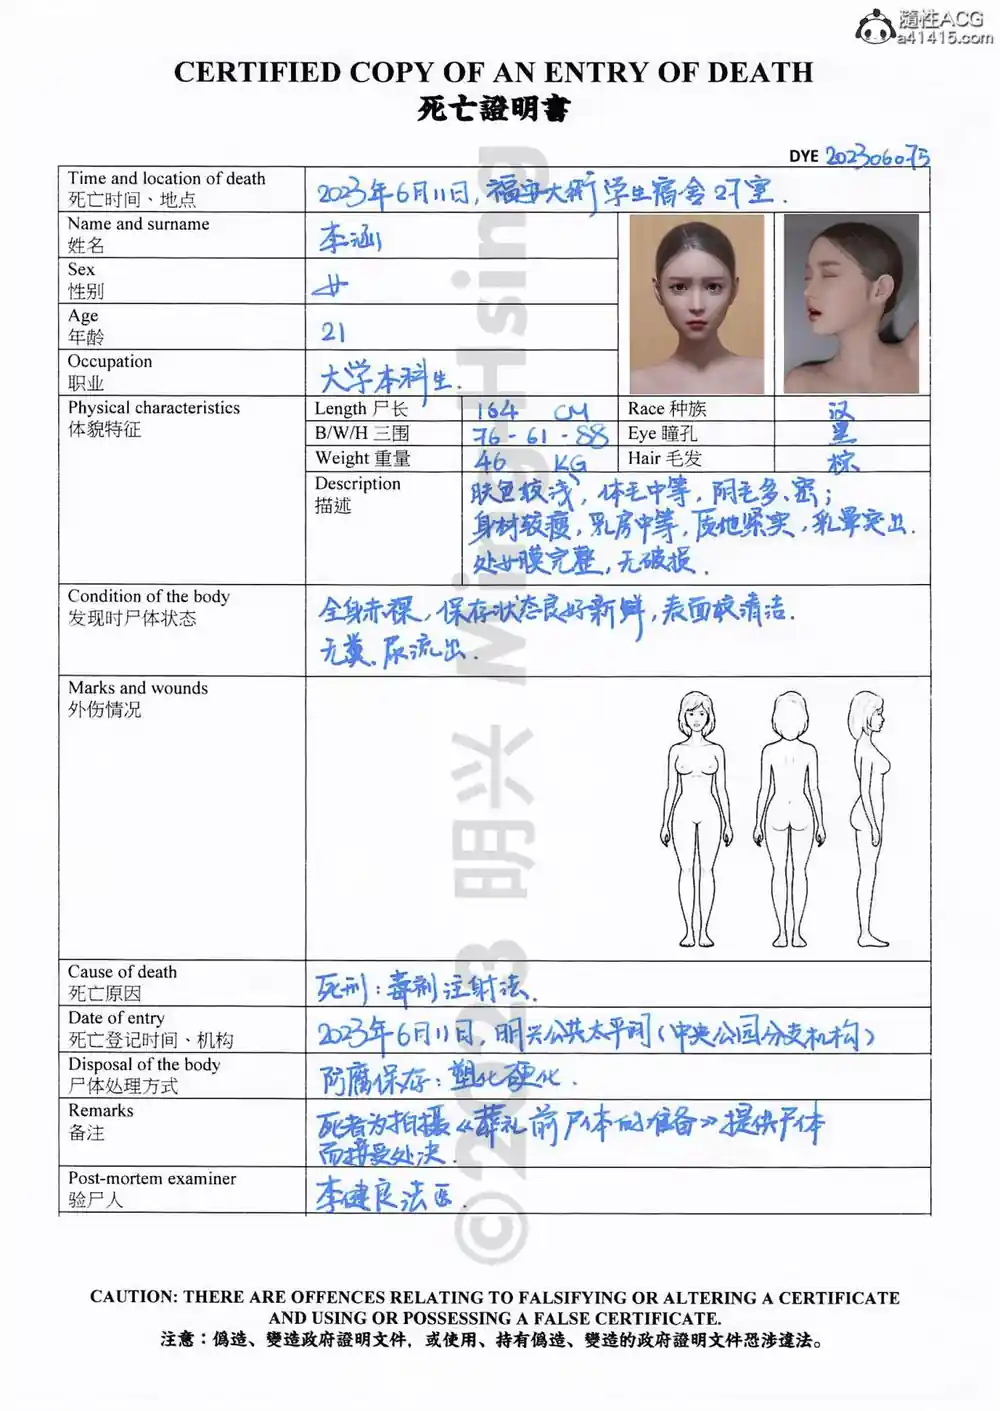 隨性ACG
a41415.com
CERTIFIED COPY OF AN ENTRY OF DEATH
死亡證明書
DYE 202306075
Time and location of death
死亡时间、地点
2023年6月11日,福安大街学生宿舍27室.
Name and surname
姓名
李涵
Sex
性别
女
Age
年龄
21
Occupation
职业
大学本科生.
Physical characteristics
体貌特征
Length 尸长 164 CM Race 种族 汉
B/W/H 三围 76-61-88 Eye 瞳孔 黑
Weight 重量 46 KG Hair 毛发 棕
Description
描述
肤色较浅,体毛中等,阴毛多、密;
身材较瘦,乳房中等,质地紧实,乳晕突出.
处女膜完整,无破损.
Condition of the body
发现时尸体状态
全身赤裸,保存状态良好新鲜,表面较清洁.
无粪、尿流出.
Marks and wounds
外伤情况
Cause of death
死亡原因
死刑:毒剂注射法.
Date of entry
死亡登记时间、机构
2023年6月11日,明兴公共太平间(中央公园分支机构)
Disposal of the body
尸体处理方式
防腐保存:塑化硬化.
Remarks
备注
死者为拍摄《葬礼前尸体的准备》提供尸体
而接受处决.
Post-mortem examiner
验尸人
李健良法医.
©2023 明兴 Ming-Hsing
CAUTION: THERE ARE OFFENCES RELATING TO FALSIFYING OR ALTERING A CERTIFICATE
AND USING OR POSSESSING A FALSE CERTIFICATE.
注意：偽造、變造政府證明文件，或使用、持有偽造、變造的政府證明文件恐涉違法。